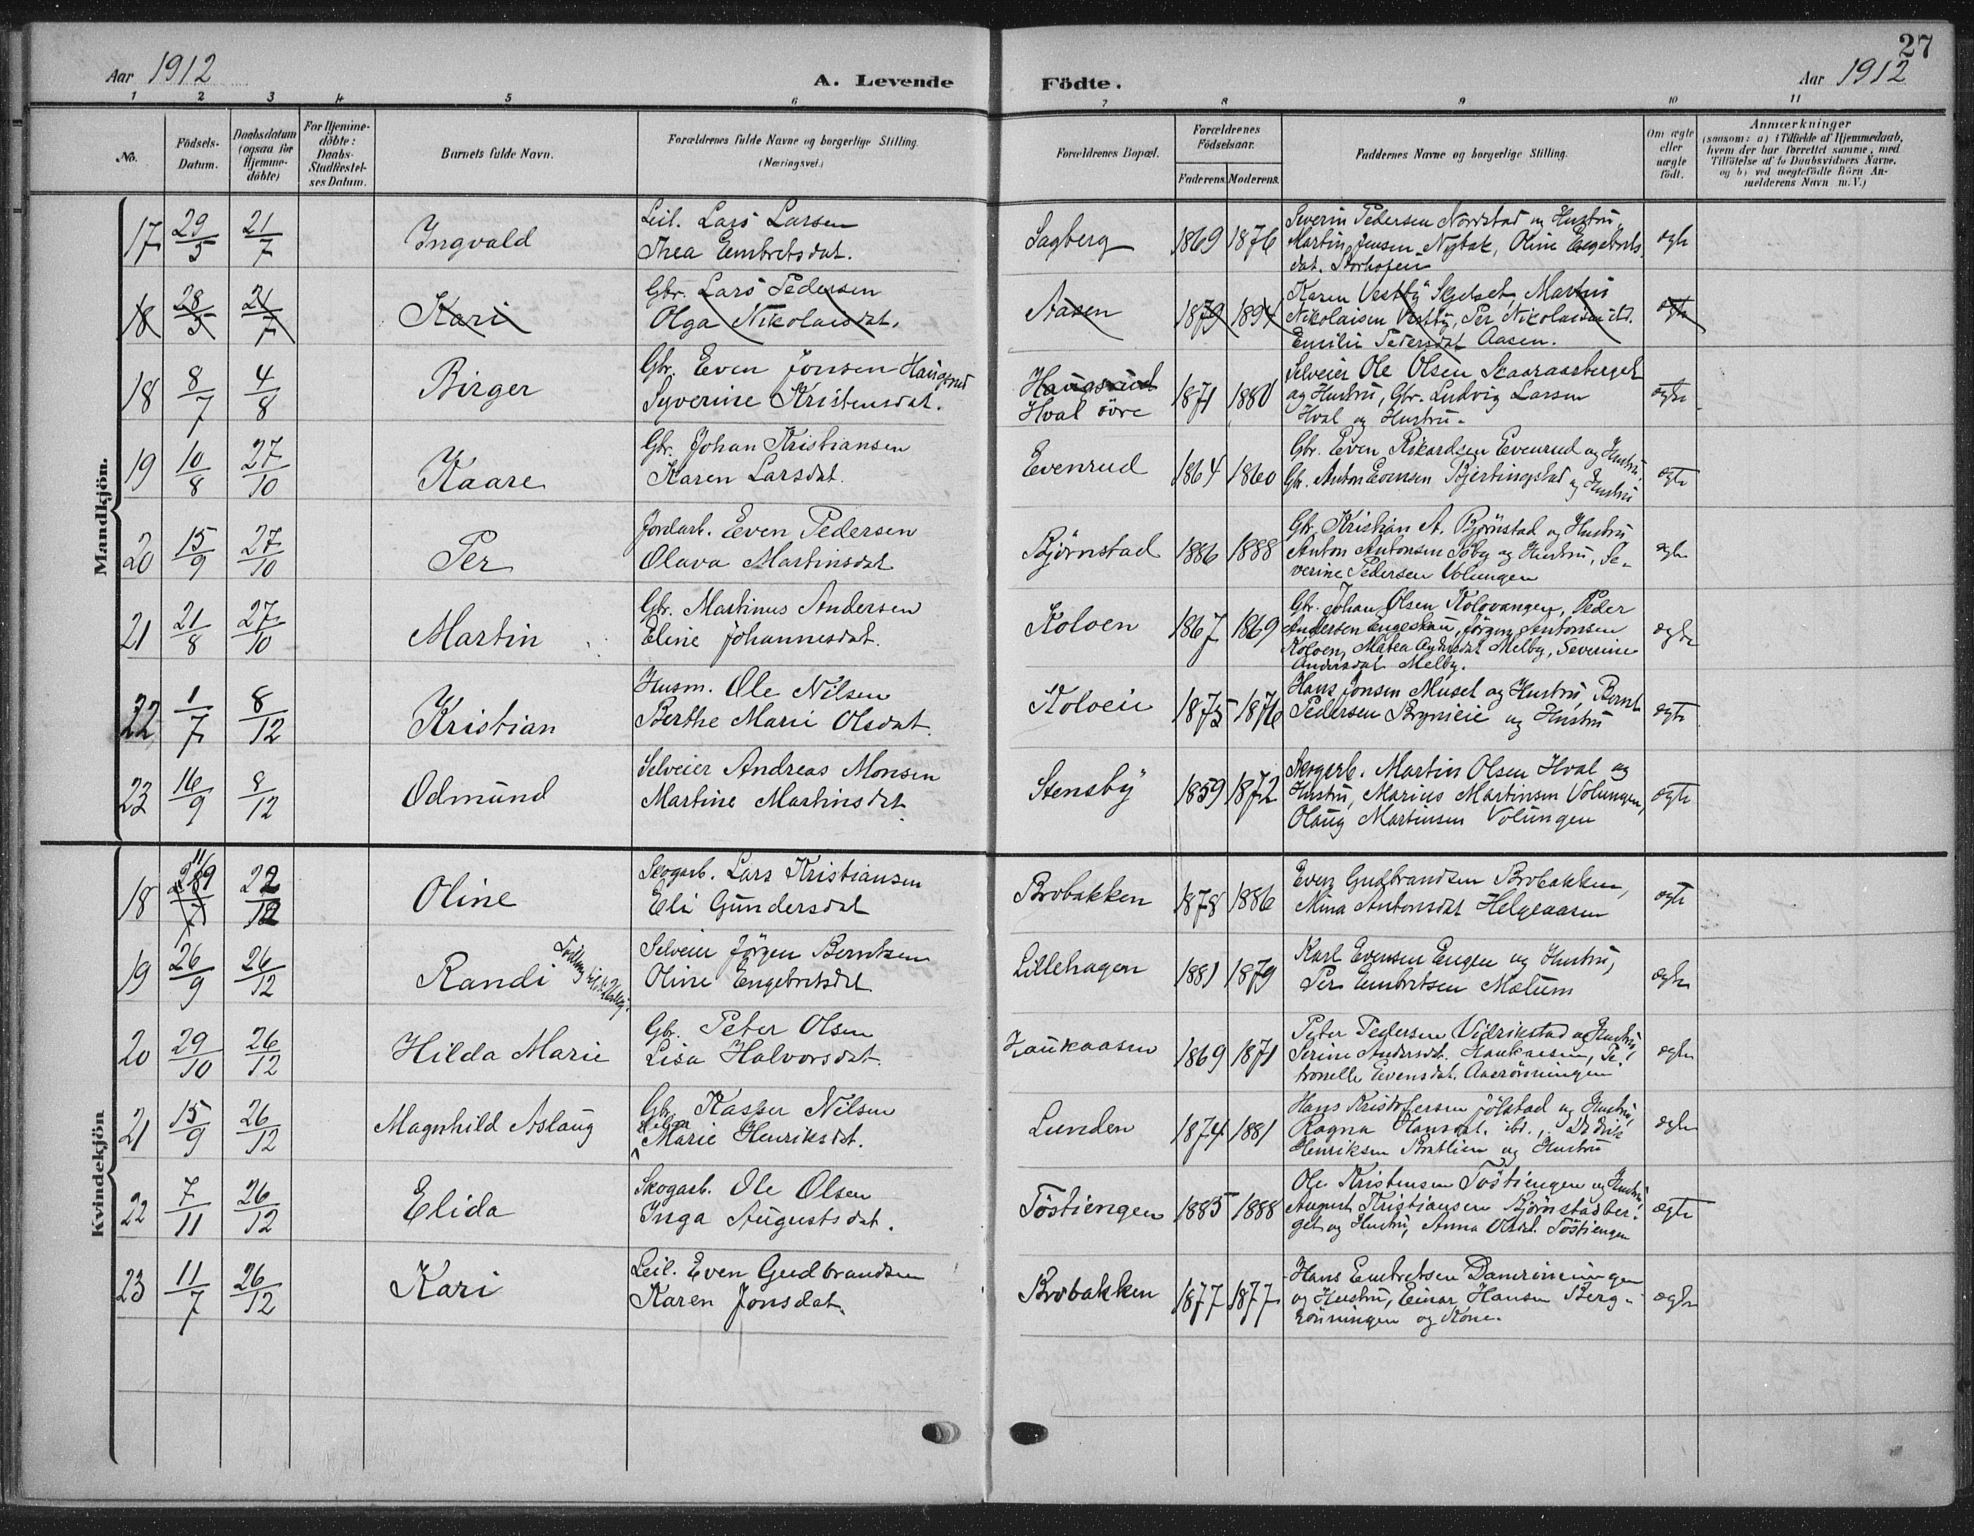 Aar 1912
A. Levende
Födte.
27
Aar 1912
1 2 3 4 5 6 7 8 9 10 11
No.
Födsels-
Datum.
Daabsdatum
(ogsaa for
Hjemme-
döbte)
For Hjemme-
döbte:
Daabs-
Stadfestel-
ses Datum.
Barnets fulde Navn.
Forældrenes fulde Navne og borgerlige Stilling.
(Næringsvei.)
Forældrenes Bopæl.
Forældrenes
Födselsaar.
Faderens. Moderens.
Faddernes Navne og borgerlige Stilling.
Om ægte
eller
uægte
født.
Anmærkninger
(saasom: a) i Tilfælde af Hjemmedaab,
hvem der har forrettet samme, med
Tilföielse af to Daabsvidners Navne,
og b) ved uægtefödte Börn An-
melderens Navn m. V.)
Mandkjön.
17 29/5 21/7 Ingvald
Leil. Lars Larsen
Thea Embretsdat.
Sagberg 1869 1876
Severin Pedersen Nordstad og Hustru,
Martin Jensen Nybak, Oline Engebrets
dat. Storhofen
ægte
18 28/5 21/7 Kari
Gbr. Lars Pedersen
Olga Nikolaisdat.
Aasen 1879 1894
Karen Vestby Skjelset, Martin
Nikolaisen Vestby, Per Nikolaisen ibd.
Emilie Pedersdat Aasen.
ægte
18 8/7 4/8 Birger
Gbr. Even Jonsen Haugsrud
Syverine Kristensdat.
Haugsrud
Hval övre
1871 1880
Selveier Ole Olsen Skaaraasberget
og Hustru, Gbr. Ludvig Larsen
Hval og Hustru.
ægte
19 10/8 27/10 Kaare
Gbr. Johan Kristiansen
Karen Larsdat.
Evenrud 1864 1860
Gbr. Even Rikardsen Evenrud og Hustru
Gbr. Anton Evensen Bjertingstad og Hustru
ægte
20 15/9 27/10 Per
Jordarb. Even Pedersen
Olava Martinsdat
Björnstad 1886 1888
Gbr. Kristian A. Björnstad og Hustru
Anton Antonsen Söby og Hustru, Se-
verine Pedersen Volungen
ægte
21 21/8 27/10 Martin
Gbr. Martinus Andersen
Eline Johannesdat.
Koloen 1867 1869
Gbr. Johan Olsen Kolovangen, Peder
Andersen Engeskau, Jörgen Antonsen
Koloen, Matea Andersdat Melby, Severine
Andersdat Melby.
ægte
22 1/7 8/12 Kristian
Husm. Ole Nilsen
Berthe Marie Olsdat.
Koloeie 1875 1876
Hans Jonsen Muset og Hustru, Bernt
Pedersen Brynieie og Hustru
ægte
23 16/9 8/12 Odmund
Selveier Andreas Monsen
Martine Martinsdat
Stensby 1859 1872
Skogarb. Martin Olsen Hval og
Hustru, Marius Martinsen Volungen,
Olaug Martinsen Volungen
ægte
Kvindekjön
18 11/9 22/12 Oline
Skogarb. Lars Kristiansen
Eli Gundersdat
Brobakken 1878 1886
Even Gudbrandsen Brobakken,
Mina Antonsdat Helgeaasen
ægte
19 26/9 26/12 Randi
Selveier Jörgen Berntsen
Oline Engebretsdat
Lillehagen 1881 1879
Karl Evensen Engen og Hustru,
Per Embretsen Mælum
ægte
20 29/10 26/12 Hilda Marie
Gbr. Peter Olsen
Lisa Halvorsdat.
Haukaasen 1869 1871
Peter Pedersen Vidrikstad og Hustru,
Serine Andersdat. Haukaasen, Pe-
tronelle Evensdat. Aaserönningen
ægte
21 15/9 26/12 Magnhild Aslaug
Gbr. Kasper Nilsen
Helga
Marie Henriksdat.
Lunden 1874 1881
Hans Kristofersen Jölstad og Hustru,
Ragna Hansdat. ibd., Didrik
Henriksen Brattlien og Hustru
ægte
22 7/11 26/12 Elida
Skogarb. Ole Olsen
Inga Augustsdat.
Töstiengen 1885 1888
Ole Kristensen Töstiengen og Hustru,
August Kristiansen Björnstadber-
get og Hustru, Anna Olsd. Töstiengen
ægte
23 11/7 26/12 Kari
Leil. Even Gudbrandsen
Karen Jonsdat.
Brobakken 1877 1877
Hans Embretsen Damrönningen
og Hustru, Einar Hansen Berg-
rönningen og Kone.
ægte